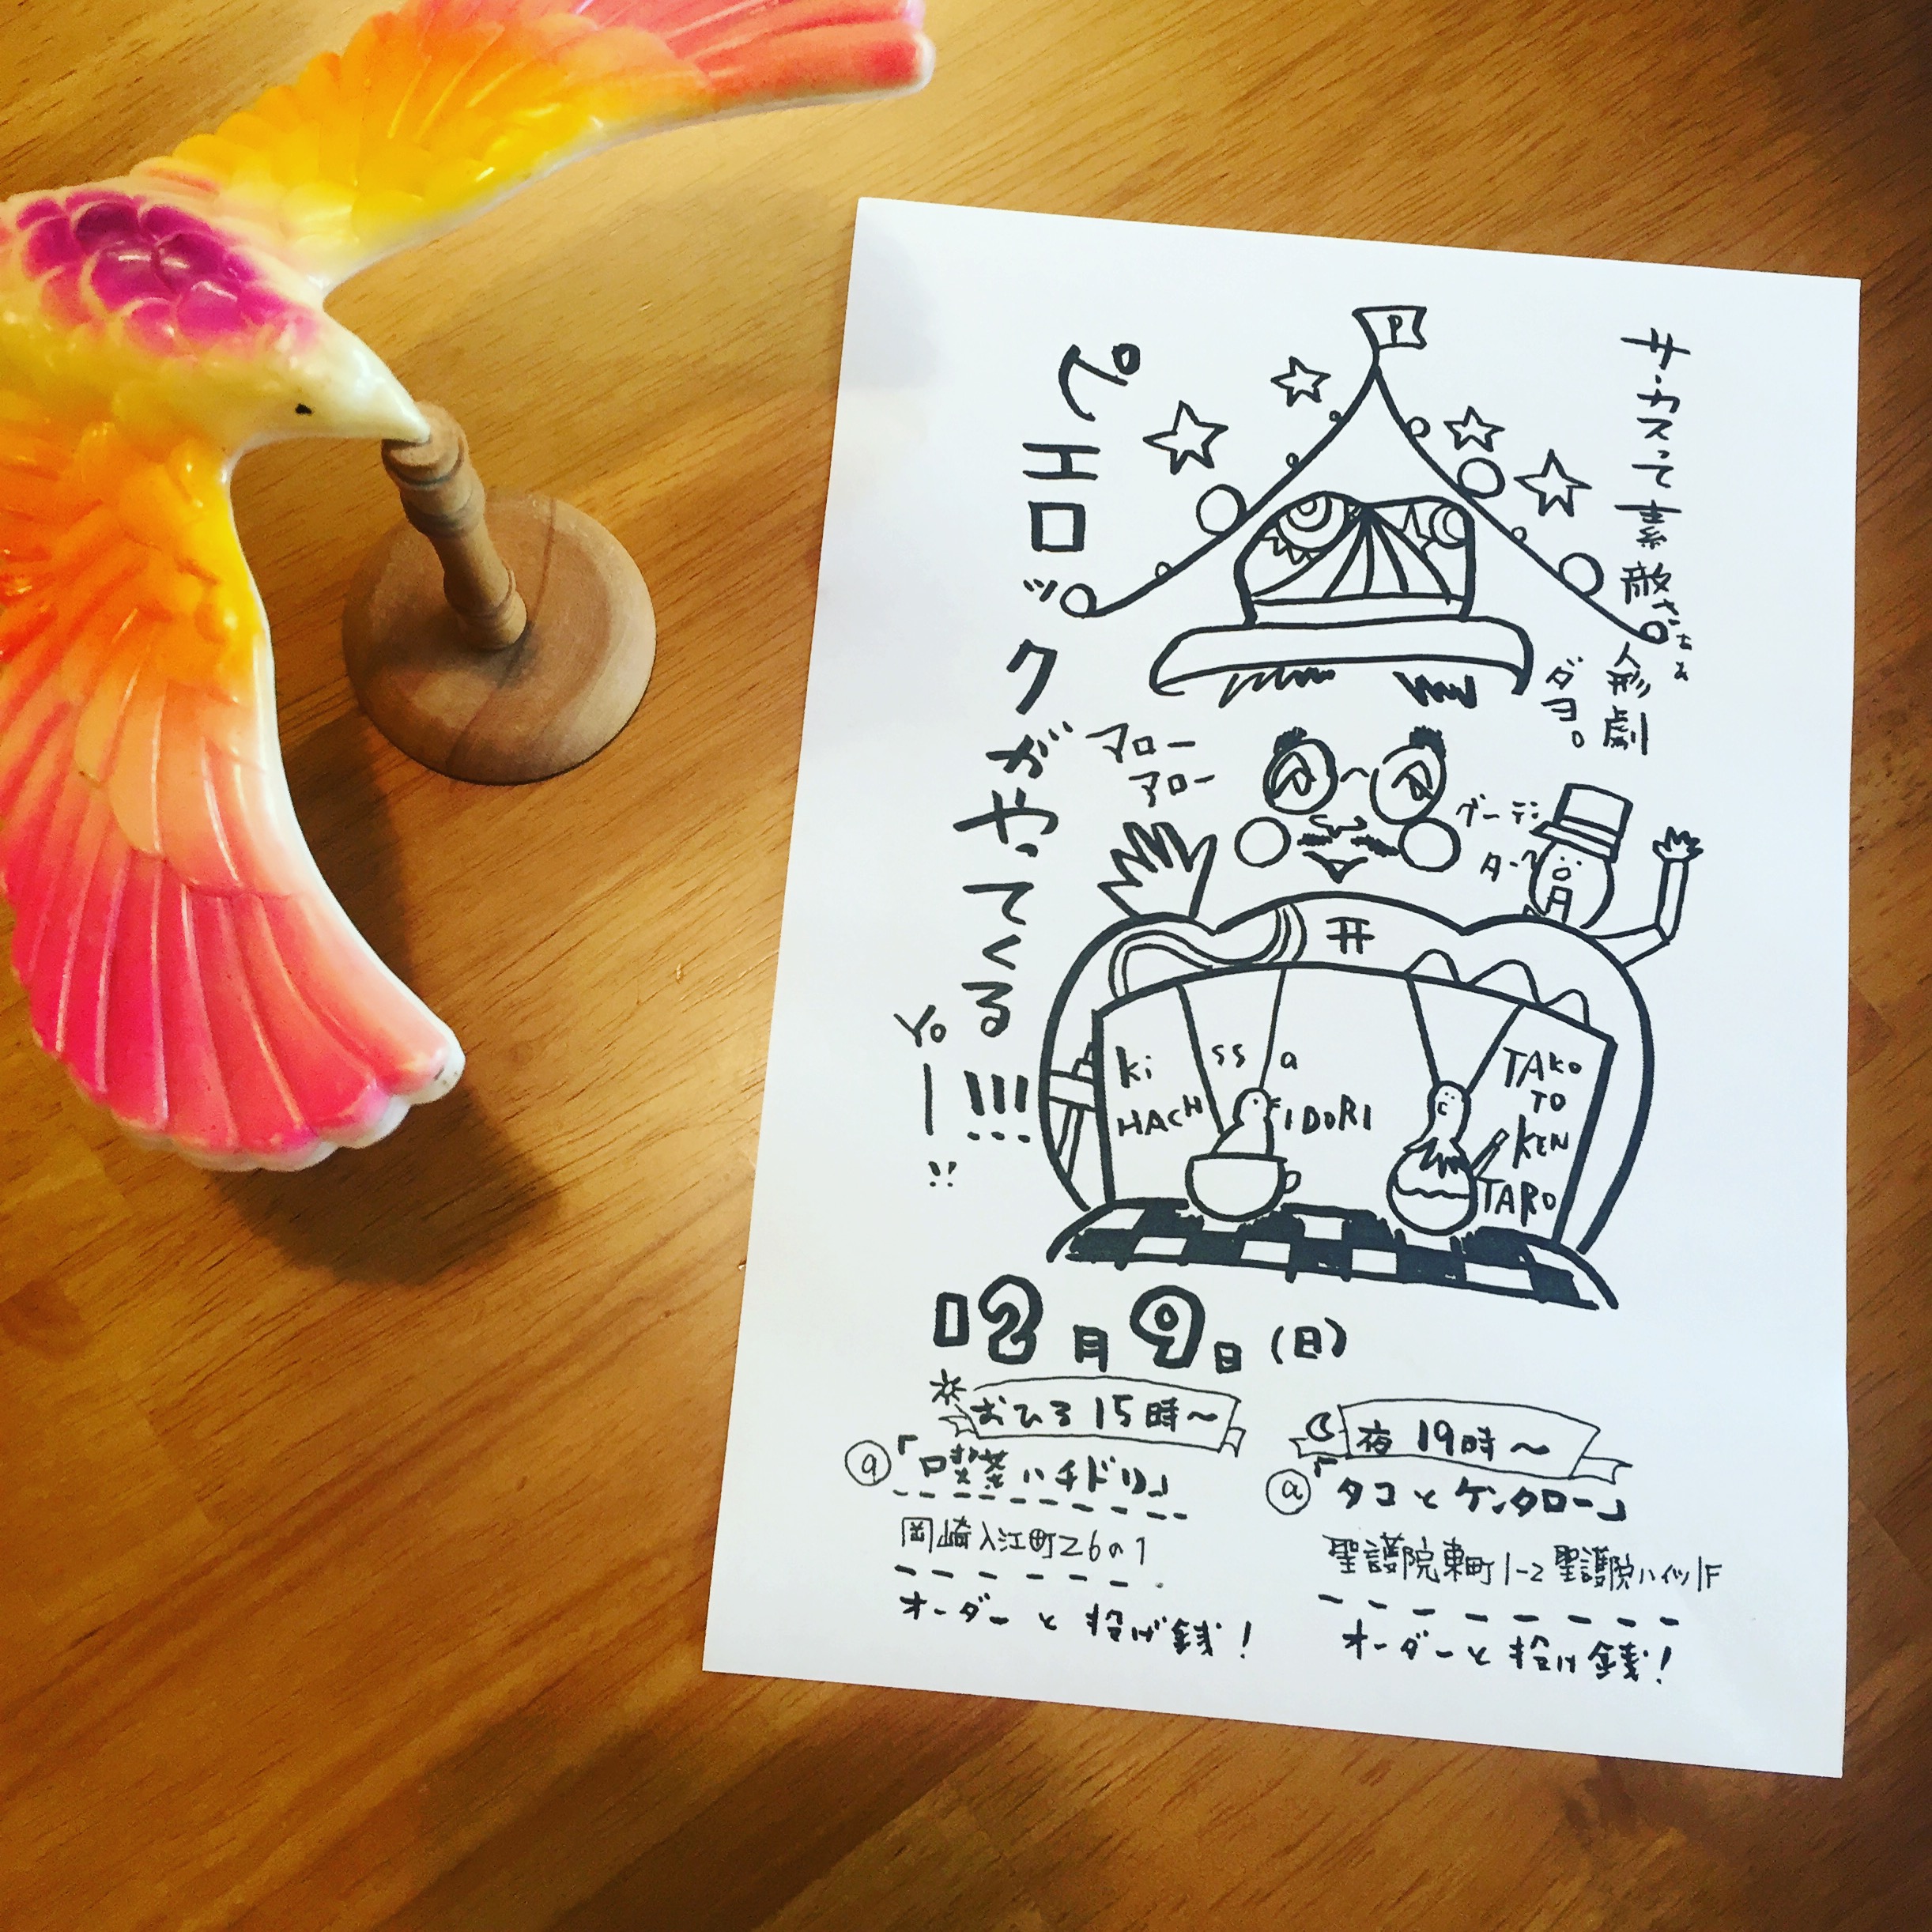 P
サーカスって素敵さぁ
人形劇
ダヨ。
ピエロックがやってくる
Yo
ー!!!
アロー
アロー
グーテン
ターク
开
ki ssa
HACHIDORI
TAKO
TO
KEN
TARO
月9日(日)
おひる15時〜
@「喫茶ハチドリ」
岡崎入江町26の1
オーダーと投げ銭!
夜19時〜
@「タコとケンタロー」
聖護院東町1-2聖護院ハイツ1F
オーダーと投げ銭!